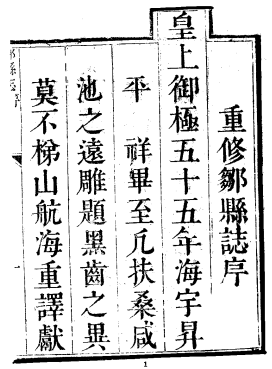 重修鄒縣誌序
皇上御極五十五年海宇昇
平　祥畢至凡扶桑咸
池之遠雕題黑齒之異
莫不梯山航海重譯獻
1